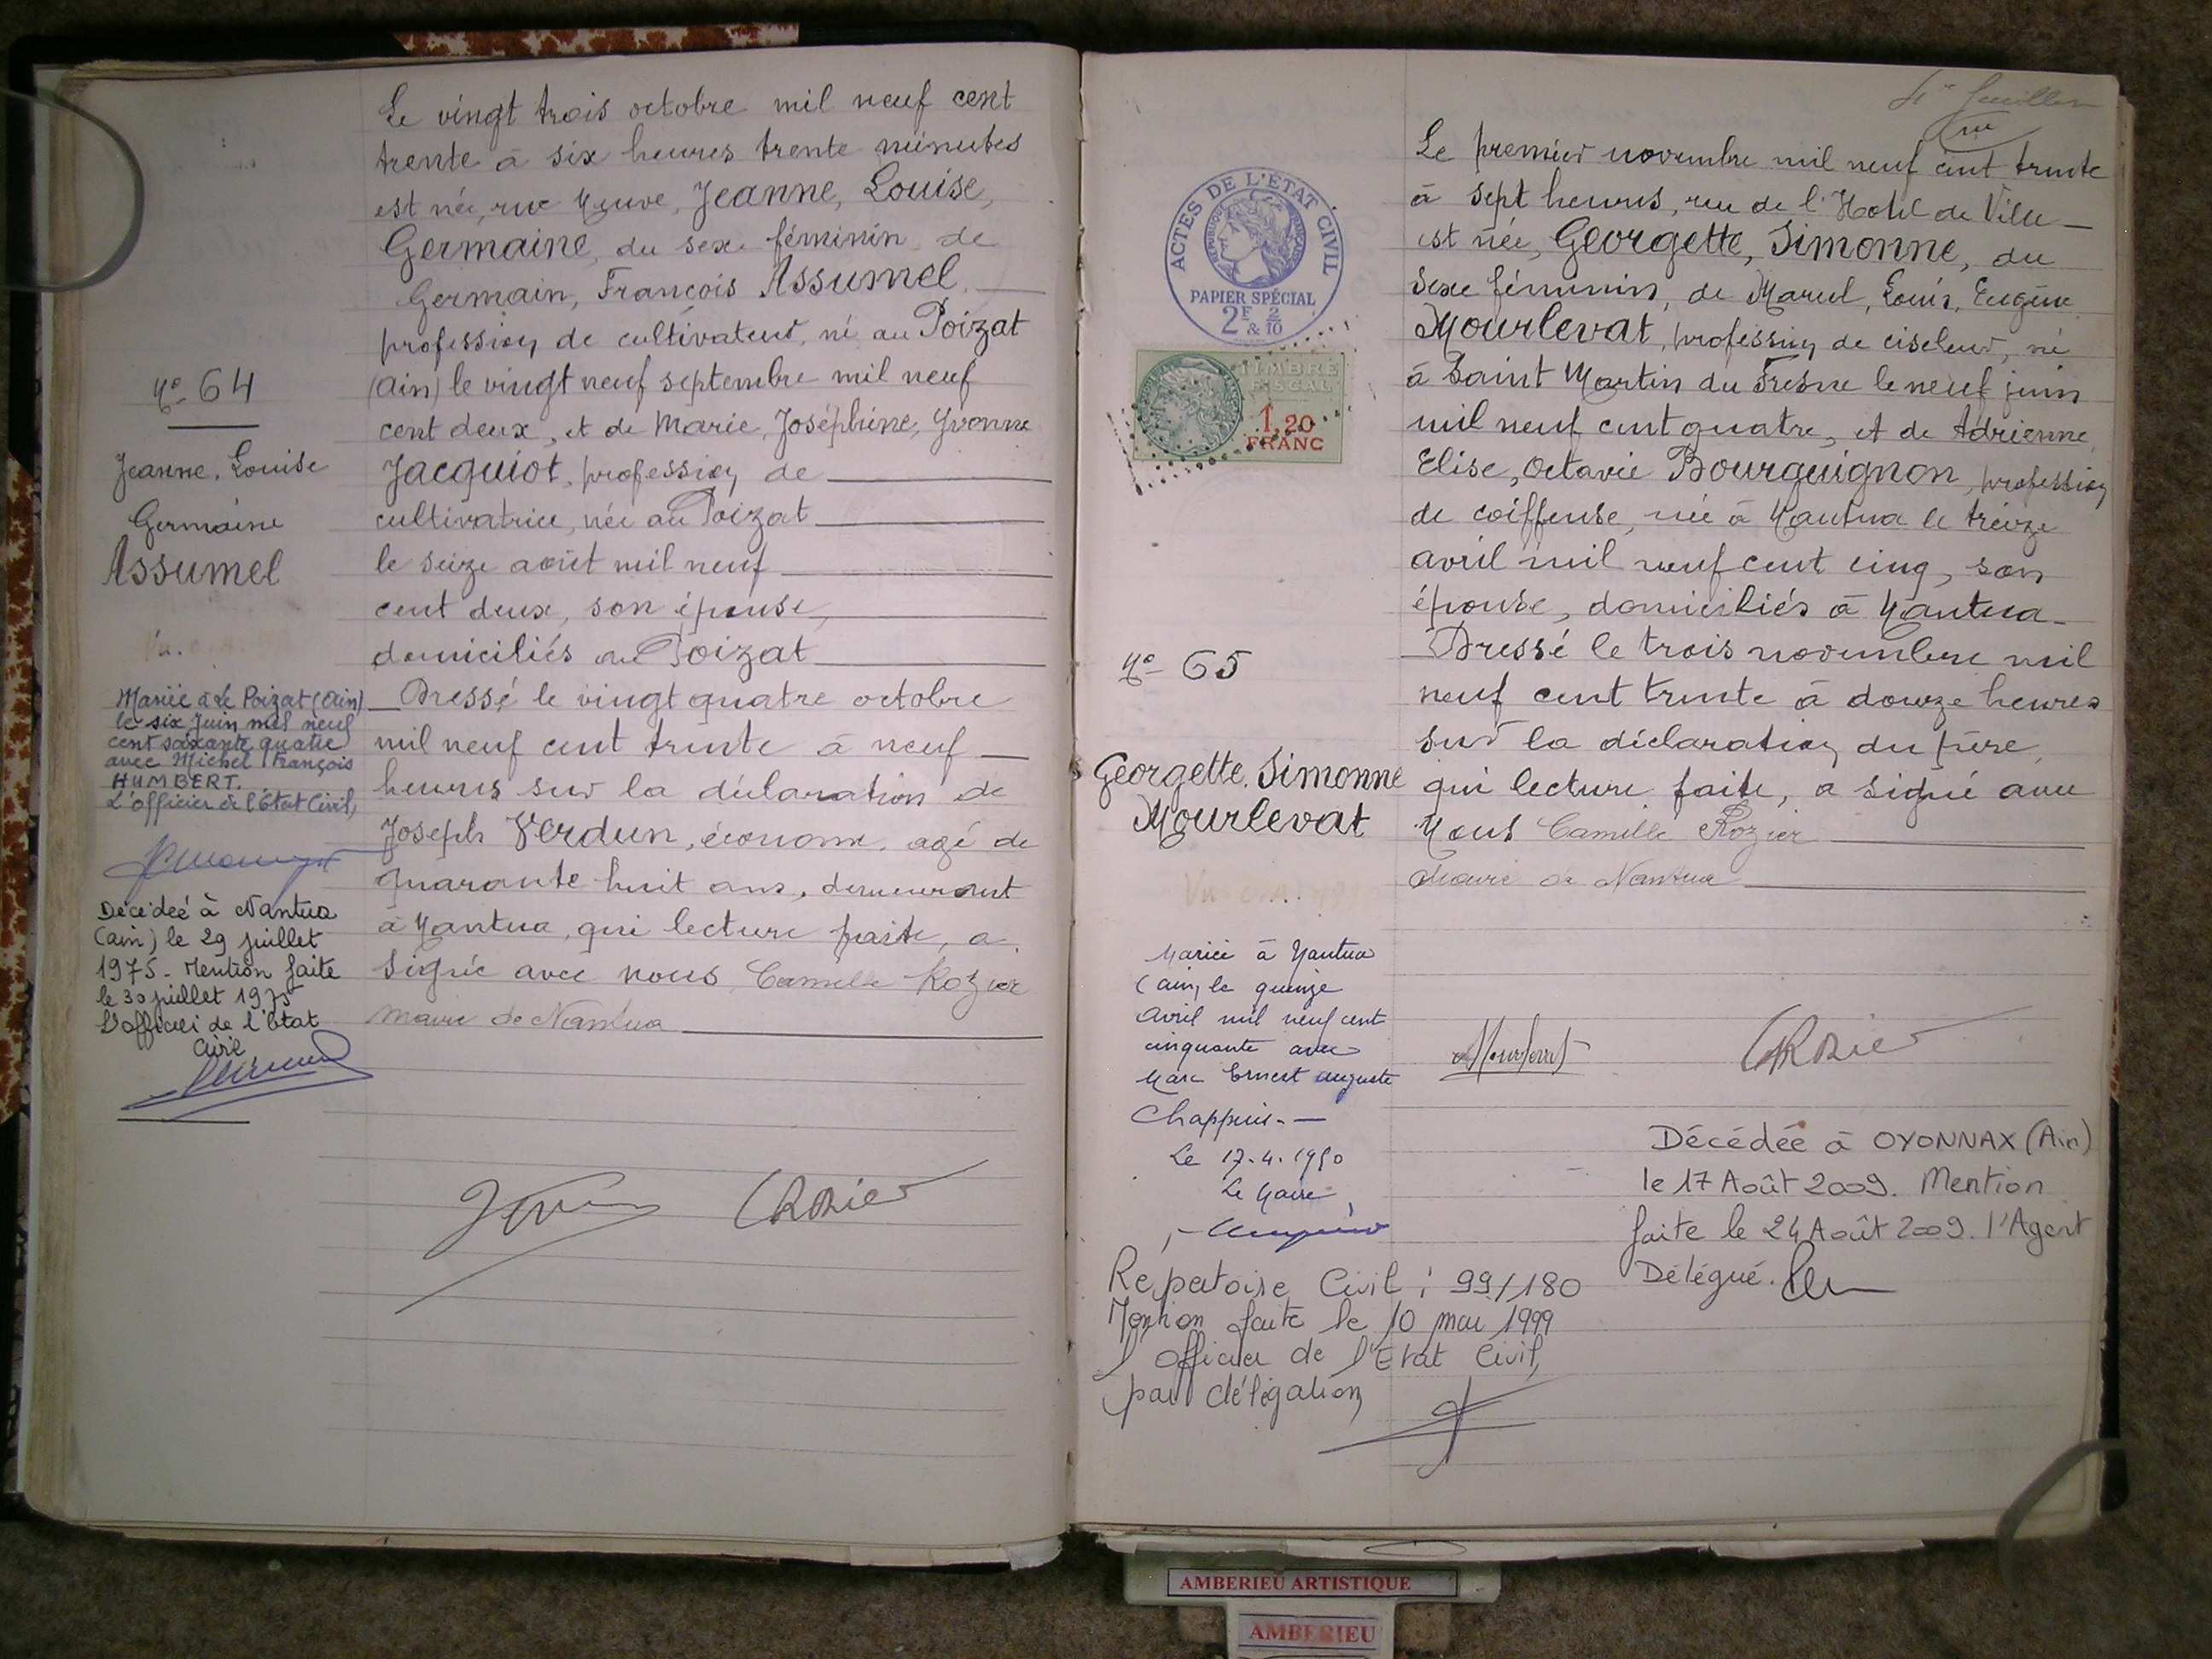 Le vingt trois octobre mil neuf cent
trente à six heures trente minutes
est née, rue Neuve, Jeanne, Louise,
Germaine, du sexe féminin de
Germain, François Assumel
profession de cultivateur, né au Poizat
(Ain) le vingt neuf septembre mil neuf
cent deux, et de Marie, Joséphine, Yvonne
Jacquiot, profession de
cultivatrice, née au Poizat
le seize août mil neuf
cent deux, son épouse,
domiciliés au Poizat
Dressé le vingt quatre octobre
mil neuf cent trente à neuf
heures sur la déclaration de
Joseph Verdun, économe, agé de
quarante huit ans, demeurant
à Nantua, qui lecture faite, a
signé avec nous Camille Rozier
Maire de Nantua
No 64
Jeanne, Louise
Germaine
Assumel
Mariée à Le Poizat (Ain)
le six Juin mil neuf
cent soixante quatre
avec Michel François
HUMBERT.
L'officier de l'Etat Civil,
Décédée à Nantua
(ain) le 29 juillet
1975. Mention faite
le 30 juillet 1975
L'officier de l'Etat
Civil
CRozier
4e feuillet
Le premier novembre mil neuf cent trente
à sept heures, rue de l'Hotel de Ville
est née, Georgette, Simonne, du
sexe féminin, de Marcel, Louis, Eugène
Mourlevat, profession de ciseleur, né
à Saint Martin du Fresne le neuf juin
mil neuf cent quatre, et de Adrienne,
Elise, Octavie Bourguignon, profession
de coiffeuse, née à Nantua le treize
avril mil neuf cent cinq, son
épouse, domiciliés à Nantua
Dressé le trois novembre mil
neuf cent trente à douze heures
sur la déclaration du père,
qui lecture faite, a signé avec
Nous Camille Rozier
Maire de Nantua
ACTES DE L'ÉTAT CIVIL
RÉPUBLIQUE FRANÇAISE
PAPIER SPÉCIAL
2F & 2/10
TIMBRE
FISCAL
1,20
FRANC
No 65
Georgette, Simonne
Mourlevat
Mariée à Nantua
(ain, le quinze
avril mil neuf cent
cinquante avec
Marc Ernest Auguste
Chappuis. —
Le 17.4.1950
Le Maire
Mourlevat
CRozier
Décédée à OYONNAX (Ain)
le 17 Août 2009. Mention
faite le 24 Août 2009. l'Agent
Délégué.
Repertoire Civil : 99/180
Mention faite le 10 mai 1999
l'officier de l'Etat Civil,
par délégation
AMBERIEU ARTISTIQUE
AMBERIEU